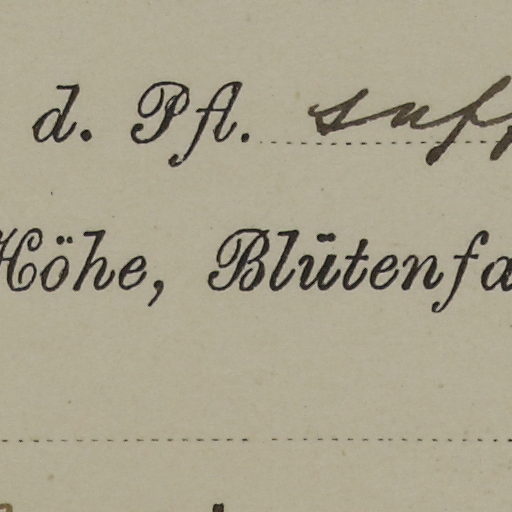 d. Pfl. suff
Höhe, Blütenfa